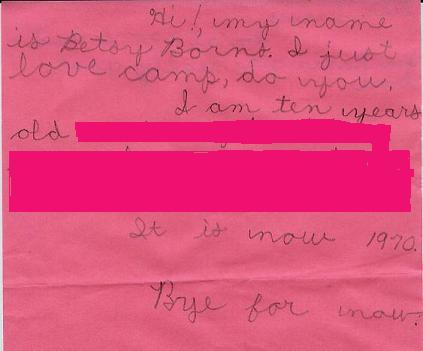 Hi!, my name
is Betsy Borns. I just
love camp, do you.
I am ten years
old
It is now 1970.
Bye for now.